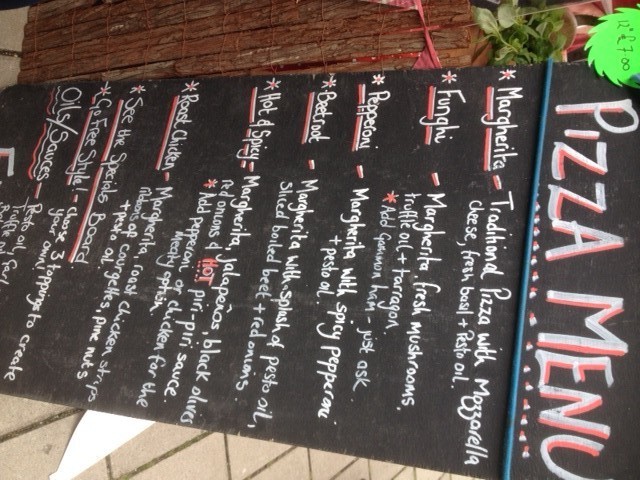 12" £7.00
PIZZA MENU
* Margherita - Traditional Pizza with Mozzarella
Cheese, fresh basil + Pesto oil
* Funghi - Margherita fresh mushrooms,
truffle oil + tarragon
* Add gammon ham just ask.
* Pepperoni - Margherita with spicy pepperoni
+ pesto oil.
* Beetroot - Margherita with splash of pesto oil,
Sliced boiled beet + red onions.
* Hot & Spicy - Margherita, jalapeños, black olives
red onions & HOT piri-piri sauce
* Add pepperoni or chicken for the
Meaty option
* Roast Chicken - Margherita, roast chicken strips
ribbons of courgettes, pine nuts
+ pesto oil
* See the Specials Board
* Go Free Style! - choose 3 toppings to create
your own!
Oils/Sauces - Pesto oil,
Truffle oil,